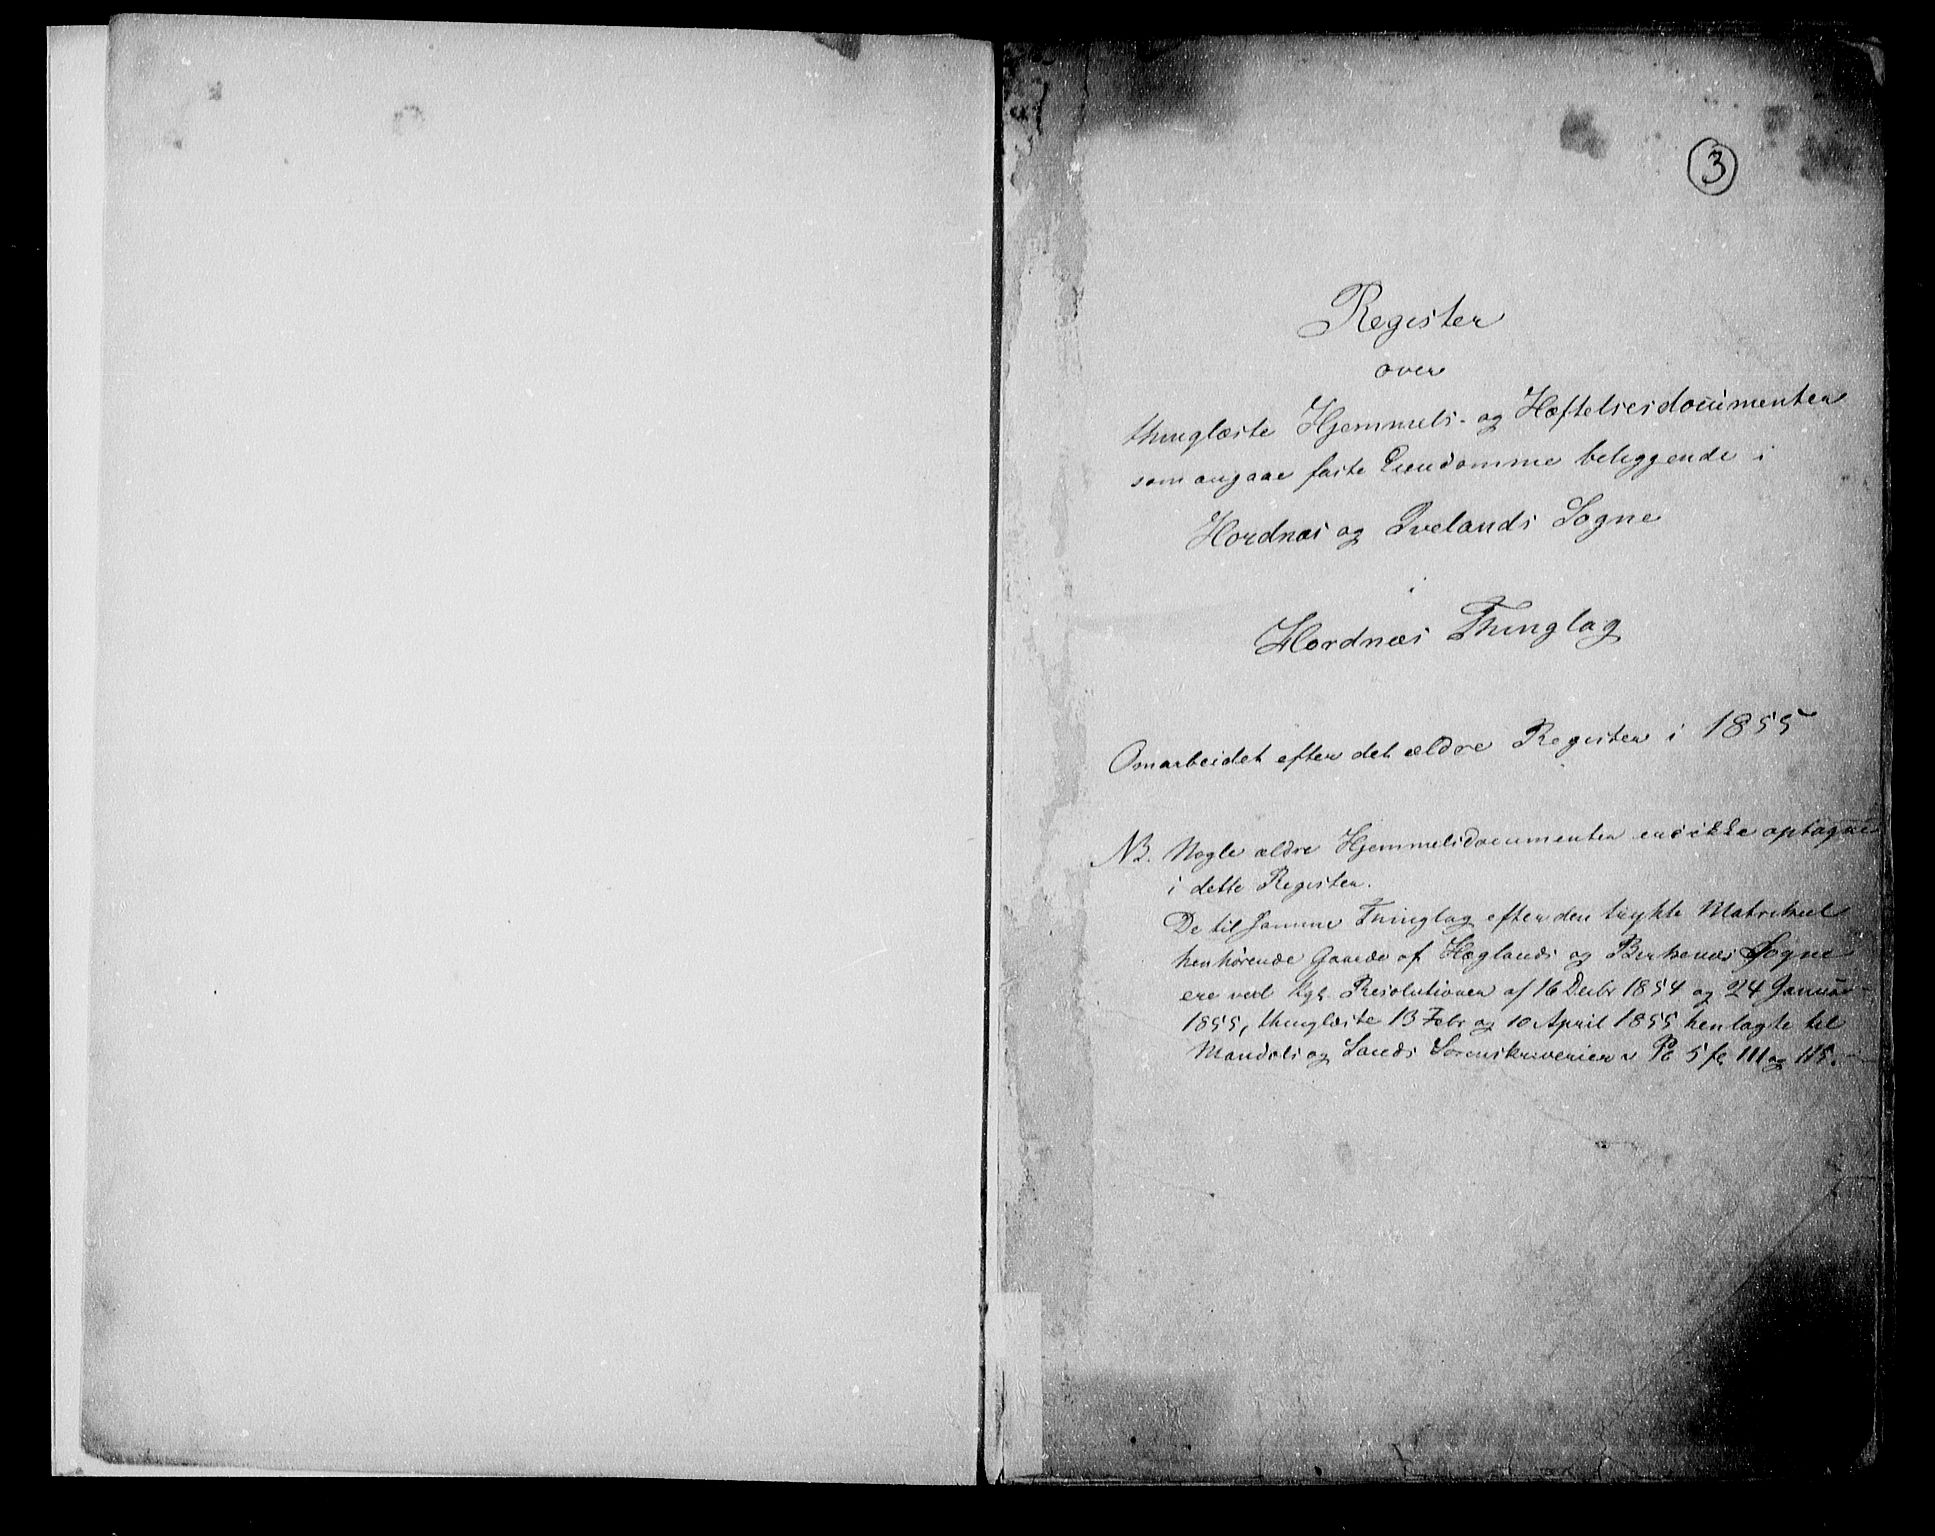 3
Register
over
thinglæste Hjemmels- og Hæftelsesdocumenter
som angaae faste Eiendomme beliggende i
Hordnæs og Ivelands Sogne
i
Hordnæs Thinglag
Omarbeidet efter det ældre Register i 1855
NB. Nogle ældre Hjemmelsdocumenter ere ikke optagne
i dette Register.
De til samme Thinglag efter den trykte Matrikul
henhørende Gaarde af Hæglands og Birkenæs Sogne
ere ved Kgl. Resolutioner af 16 Decbr 1854 og 24 Januar
1855, thinglæste 13 Febr og 10 April 1855 henlagte til
Mandals og Sands Sorenskriverier v. P 5 fo 111 og 115.